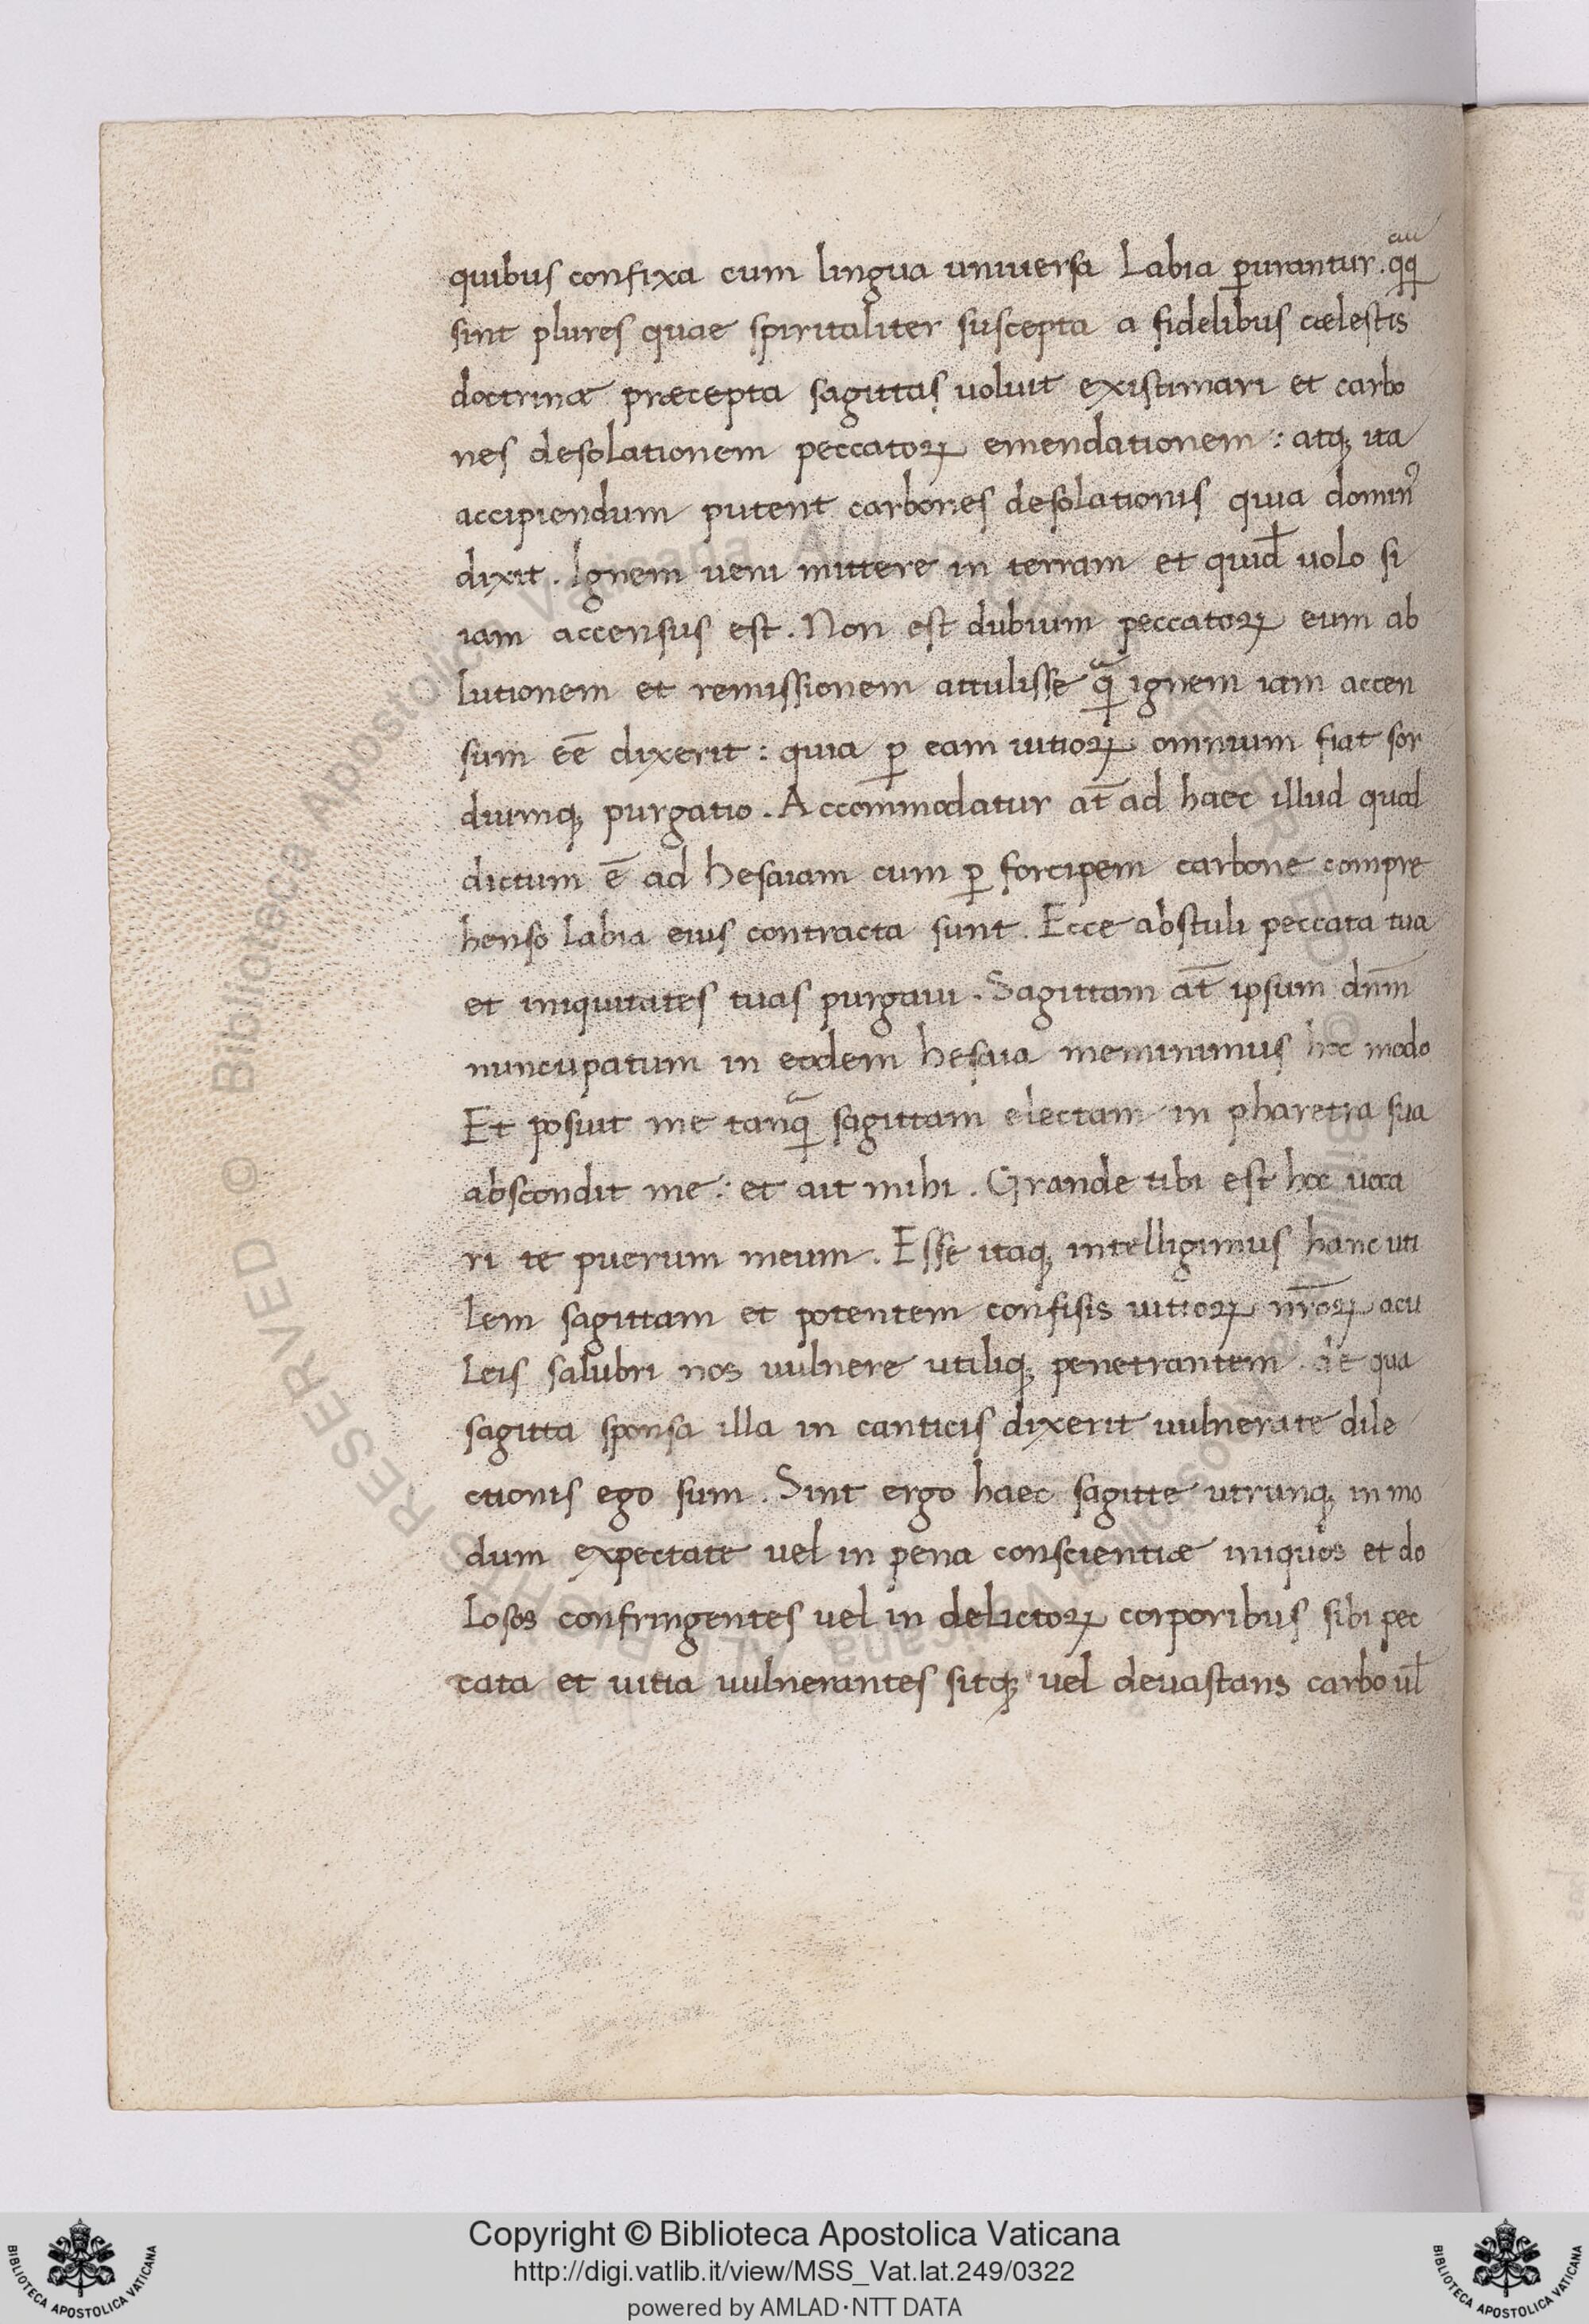 quibus confixa cum lingua universa labia ꝑurantur. qq̃
sint plures quae spiritaliter suscepta a fidelibus cælestis
doctrinæ præcepta sagittas voluit existimari et carbo
nes desolationem peccatoꝝ emendationem: atq; ita
accipiendum putent carbones desolationis quia dominꝰ
dixit. Ignem veni mittere in terram et quid̄ uolo si
iam accensus est. Non est dubium peccatoꝝ eum ab
lutionem et remissionem attulisse q̃ ignem iam accen
sum eē dixerit: quia ꝑ eam uitioꝝ omnium fiat sor
diumq; purgatio. Accommodatur at̄ ad haec illud quod
dictum ē ad hesaiam cum ꝑ forcipem carbone compre
henso labia eius contracta sunt. Ecce abstuli peccata tua
et iniquitates tuas purgaui. Sagittam at̄ ipsum dnm̄
nuncupatum in eodem hesaia meminimus hoc modo
Et posuit me tanq̃ sagittam electam in pharetra sua
abscondit me: et ait mihi. Grande tibi est hoc uoca
ri te puerum meum. Esse itaq; intelligimus hanc uti
lem sagittam et potentem confisis uitioꝝ nr̄oꝝ acu
leis salubri nos uulnere utiliq; penetrantem. de qua
sagitta sponsa illa in canticis dixerit uulnerate dile
ctionis ego sum. Sint ergo haec sagitte utrunq; in mo
dum expectate uel in pena conscientiæ iniquos et do
losos confringentes uel in delictoꝝ corporibus sibi pec
cata et uitia uulnerantes sitq; uel deuastans carbo ul̄
Copyright © Biblioteca Apostolica Vaticana
http://digi.vatlib.it/view/MSS_Vat.lat.249/0322
powered by AMLAD·NTT DATA
BIBLIOTECA APOSTOLICA VATICANA
BIBLIOTECA APOSTOLICA VATICANA